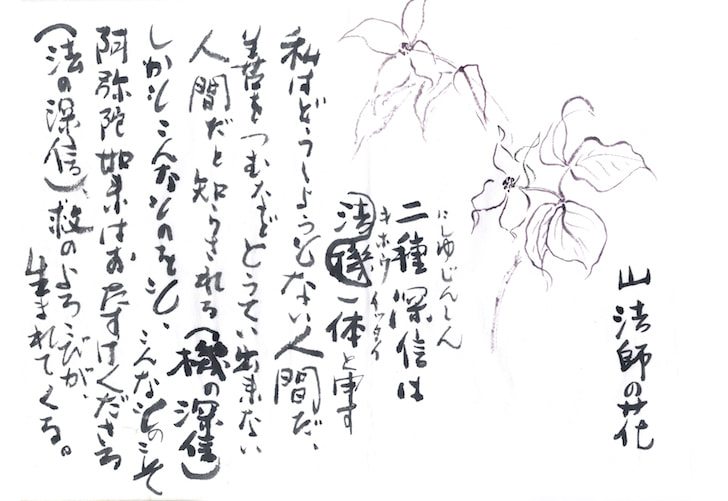 山法師の花
にしゅじんしん
二種深信は
キホウイッタイ
法機一体と申す
私はどうしようもない人間だ、
善をつむなどとうてい出来ない
人間だと知らされる(機の深信)
しかもこんなものをも、こんなものこそ
阿弥陀如来はおたすけくださる
(法の深信)救のよろこびが、
生まれてくる。